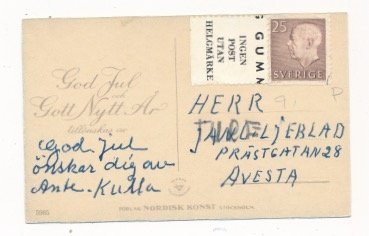 God Jul
och
Gott Nytt År
tillönskas av
God jul
önskar dig av
Ante. Kulla
5985
FÖRLAG NORDISK KONST STOCKHOLM.
INGEN
POST
UTAN
HELGMÄRKE
GUMM
25
SVERIGE
HERR
LJEBLAD
PRÄSTGATAN 28
AVESTA